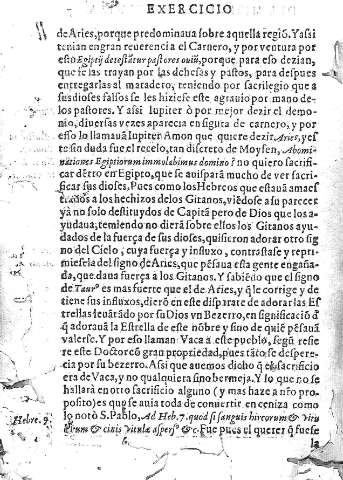 EXERCICIO
de Aries, porque predominaua sobre aquella regiõ. Y assi
tenian en gran reuerencia el Carnero, y por ventura por
esto Egiptij detestãtur pastores ouiũ, porque para eso dezian,
que se las trayan por las dehesas y pastos, para despues
entregarlas al matadero, teniendo por sacrilegio que a
sus dioses falsos se les hiziese este agrauio por mano de
los pastores. Y assi Iupiter ò por mejor dezir el demo-
nio, diuersas vezes aparecia en figura de carnero, y por
esso lo llamauã Iupiter Amon que quiere dezir Aries, y es
te sin duda fue el recelo, tan discreto de Moysen, Abomi-
nationes Egiptiorum immolabimus domino? no quiero sacrifi-
car dẽtro en Egipto, que se auisparà mucho de ver sacri-
ficar sus dioses. Pues como los Hebreos que estauã amaes
trados a los hechizos delos Gitanos, viẽdose a su parecer
yà no solo destituydos de Capitã pero de Dios que los a-
yudaua, temiendo no diera sobre ellos los Gitanos ayu-
dados de la fuerça de sus dioses, quisieron adorar otro sig
no del Cielo, cuya fuerça y influxo, contrastase y repri-
miesse la del signo de Aries, que pẽsaua esta gente engaña-
da, que daua fuerça a los Gitanos. Y sabiẽdo que el signo
de Taurº es mas fuerte que el de Aries, y q̃ le corrige y de
tiene sus influxos, dierõ en este disparate de adorar las Es
trellas leuãtado por su Dios vn Bezerro, en significaciõ d̃
q̃ adorauã la Estrella de este nõbre y sino de quiẽ pẽsauã
valerse. Y por eso llaman Vaca a este pueblo, segũ refie
re este Doctor cõ gran propriedad, pues tãto se despere-
cia por su bezerro. Assi que auemos dicho q̃ el sacrificio
era de Vaca, y no qualquiera sino bermeja. Y lo que no se
hallarà en otro sacrificio alguno (y mas haze a nr̃o pro-
posito) es que se auia toda de conuertir en ceniza como
lo notò S. Pablo, Ad Heb. 7. quod si sanguis hircorum & vitu
Hebre. 9.
lorum & cinis vitulæ aspers' & c. Fue pues el querer q̃ fuese
la